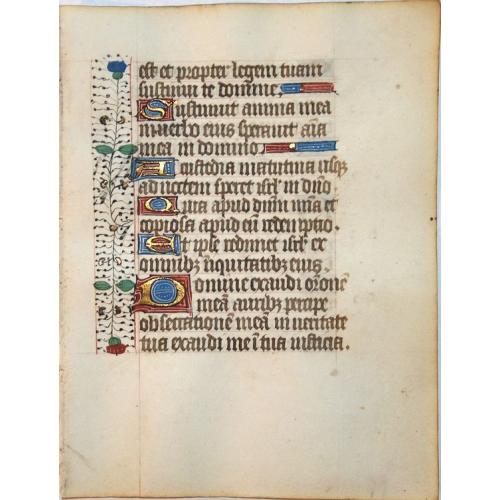 est et propter legem tuam
sustinui te domine
Sustinuit anima mea
in verbo eius speravit aīa
mea in domino
A custodia matutina usq;
ad noctem speret isrl in dn̄o.
Quia apud dn̄m mīa et
copiosa apud eū redemptio.
Et ipse redimet isrl ex
omnibꝫ iniquitatibꝫ eius.
Domine exaudi orōnē
meā auribꝫ percipe
obsecrationē meā in veritate
tua exaudi me ī tua iusticia.